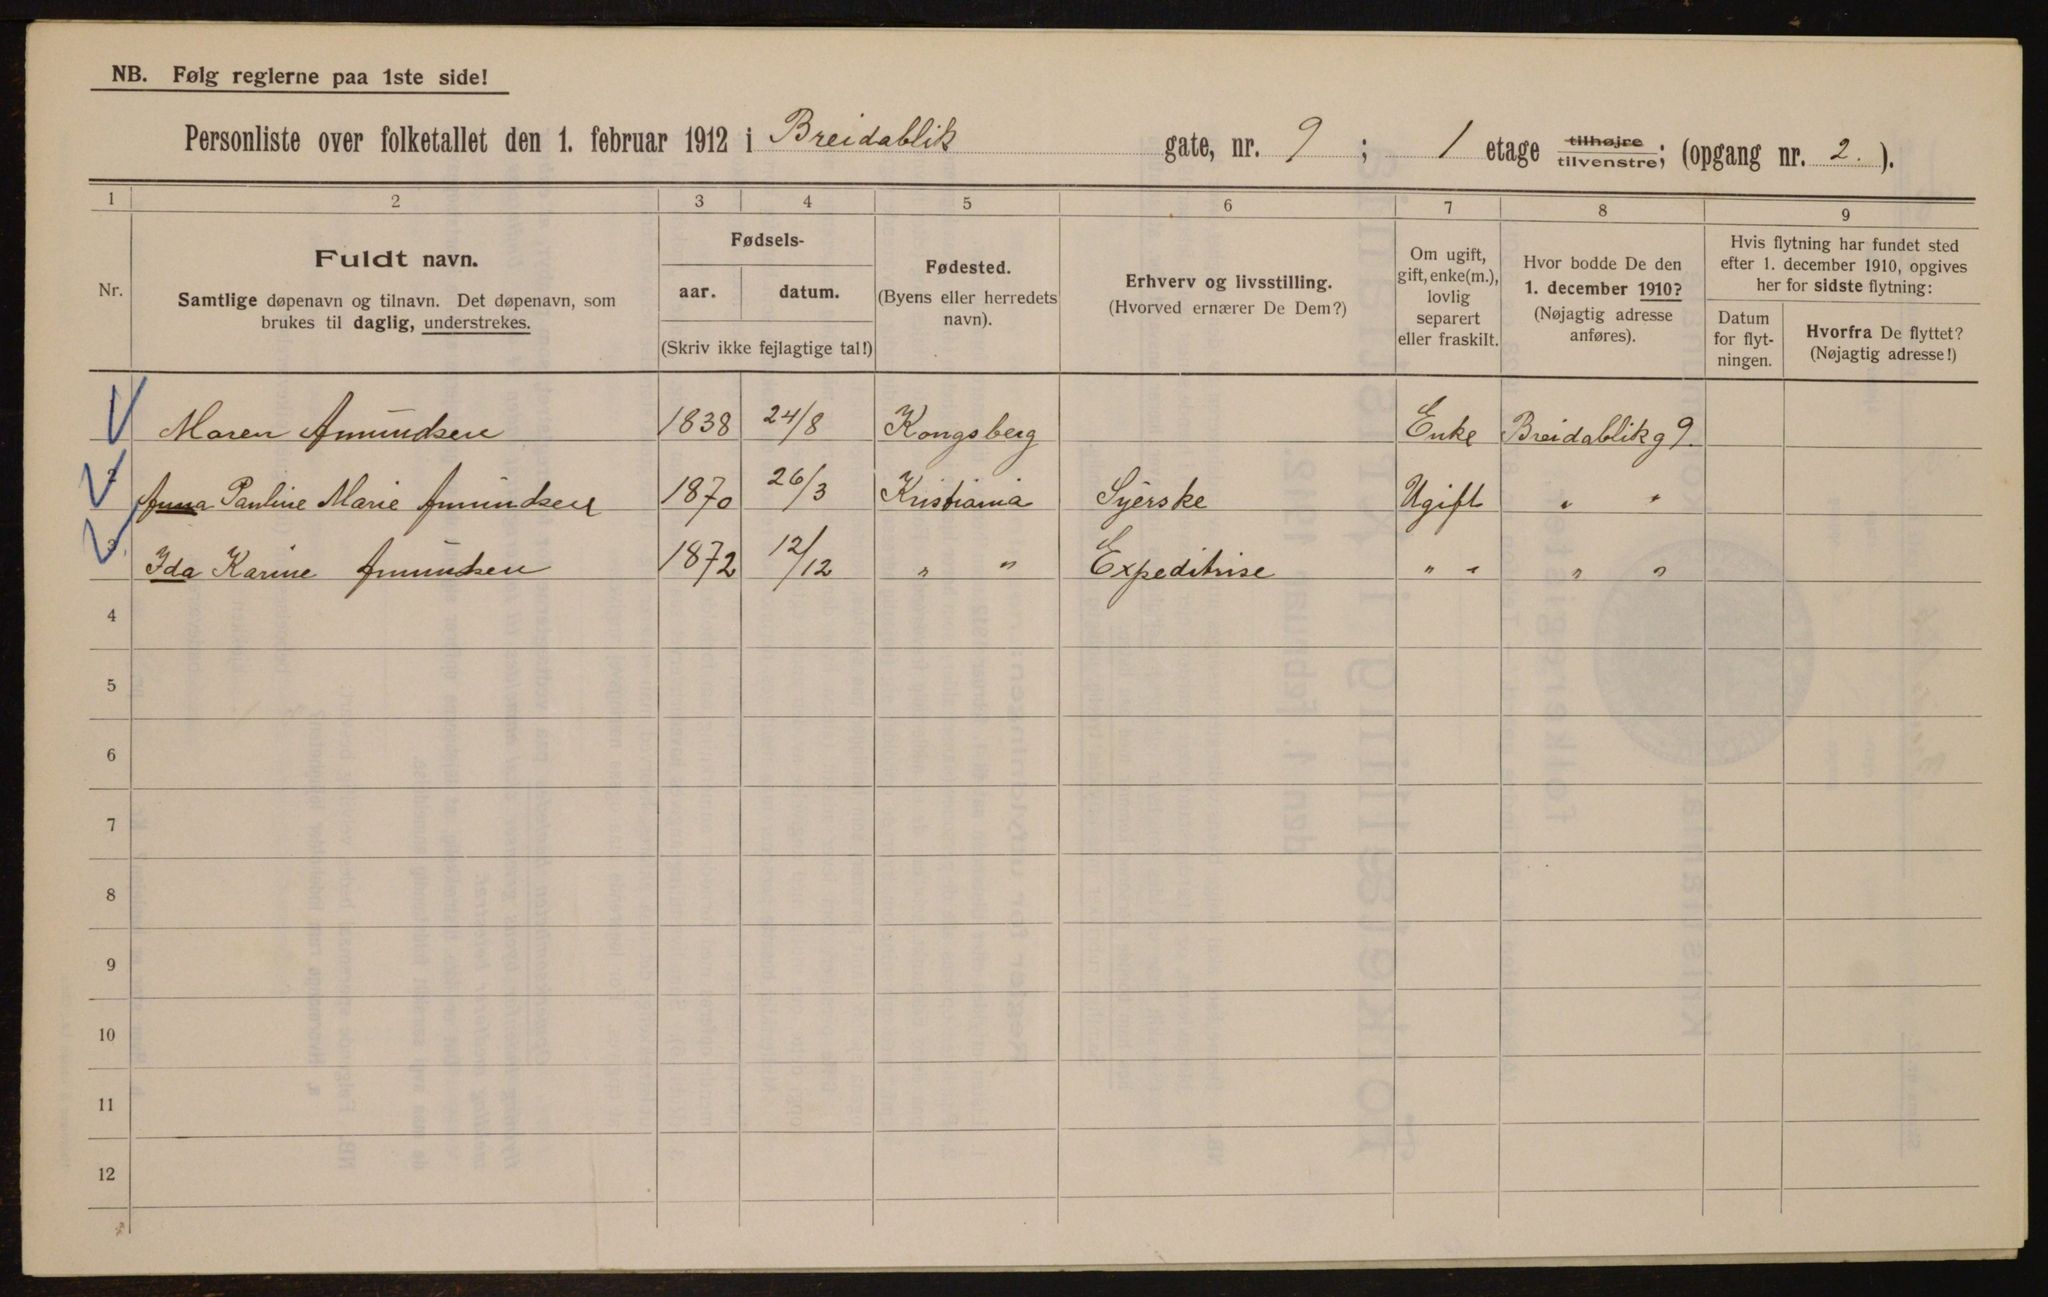 NB. Følg reglerne paa 1ste side!
Personliste over folketallet den 1. februar 1912 i Breidablik gate, nr. 9 ; 1 etage tilhøjre tilvenstre; (opgang nr. 2. ).
1 2 3 4 5 6 7 8 9
Nr.
Fuldt navn.
Samtlige døpenavn og tilnavn. Det døpenavn, som
brukes til daglig, understrekes.
Fødsels-
aar. datum.
(Skriv ikke fejlagtige tal!)
Fødested.
(Byens eller herredets
navn).
Erhverv og livsstilling.
(Hvorved ernærer De Dem?)
Om ugift,
gift, enke(m.),
lovlig
separert
eller fraskilt.
Hvor bodde De den
1. december 1910?
(Nøjagtig adresse
anføres).
Hvis flytning har fundet sted
efter 1. december 1910, opgives
her for sidste flytning:
Datum
for flyt-
ningen.
Hvorfra De flyttet?
(Nøjagtig adresse!)
Maren Amundsen 1838 24/8 Kongsberg Enke Breidablikg 9.
2 Anna Pauline Marie Amundsen 1870 26/3 Kristiania Syerske Ugift " "
3 Ida Karine Amundsen 1872 12/12 " " Expeditrise " " " "
4
5
6
7
8
9
10
11
12